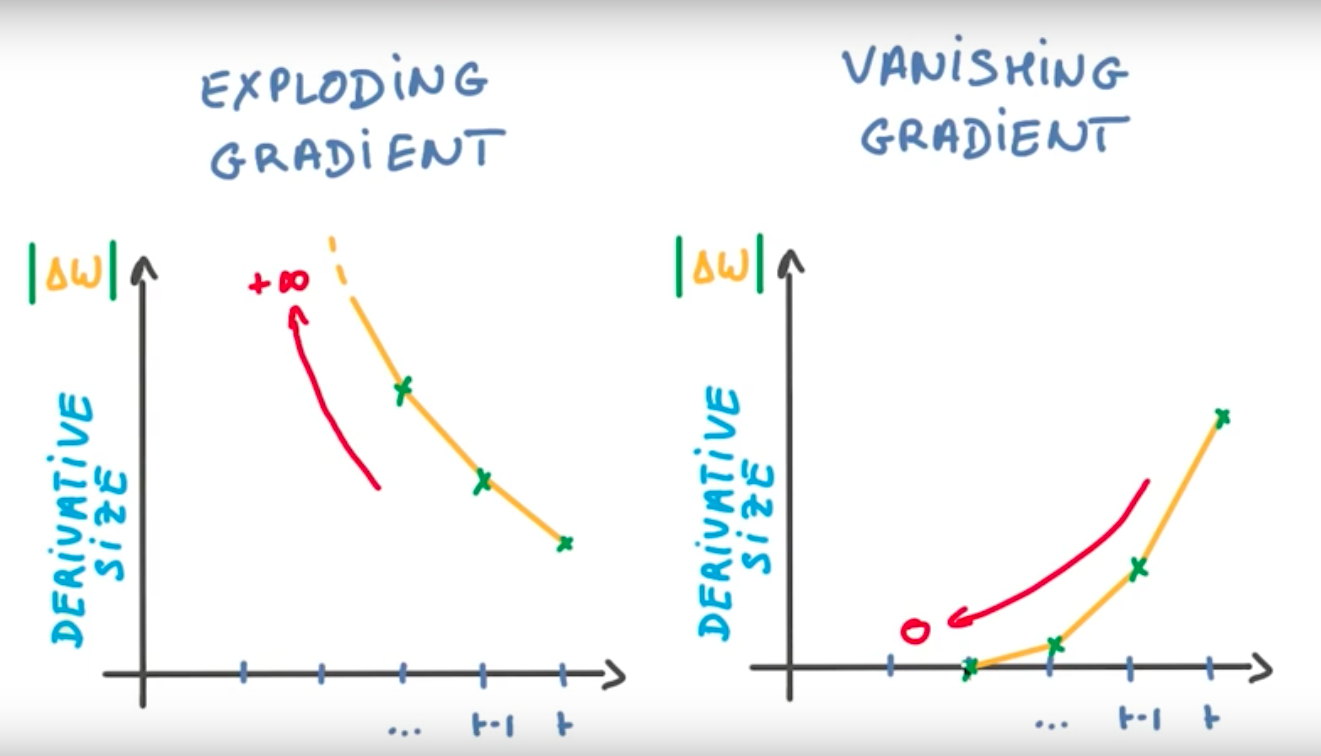 EXPLODING
GRADIENT
|ΔW|
+∞
DERIVATIVE
SIZE
... t-1 t
VANISHING
GRADIENT
|ΔW|
0
DERIVATIVE
SIZE
... t-1 t